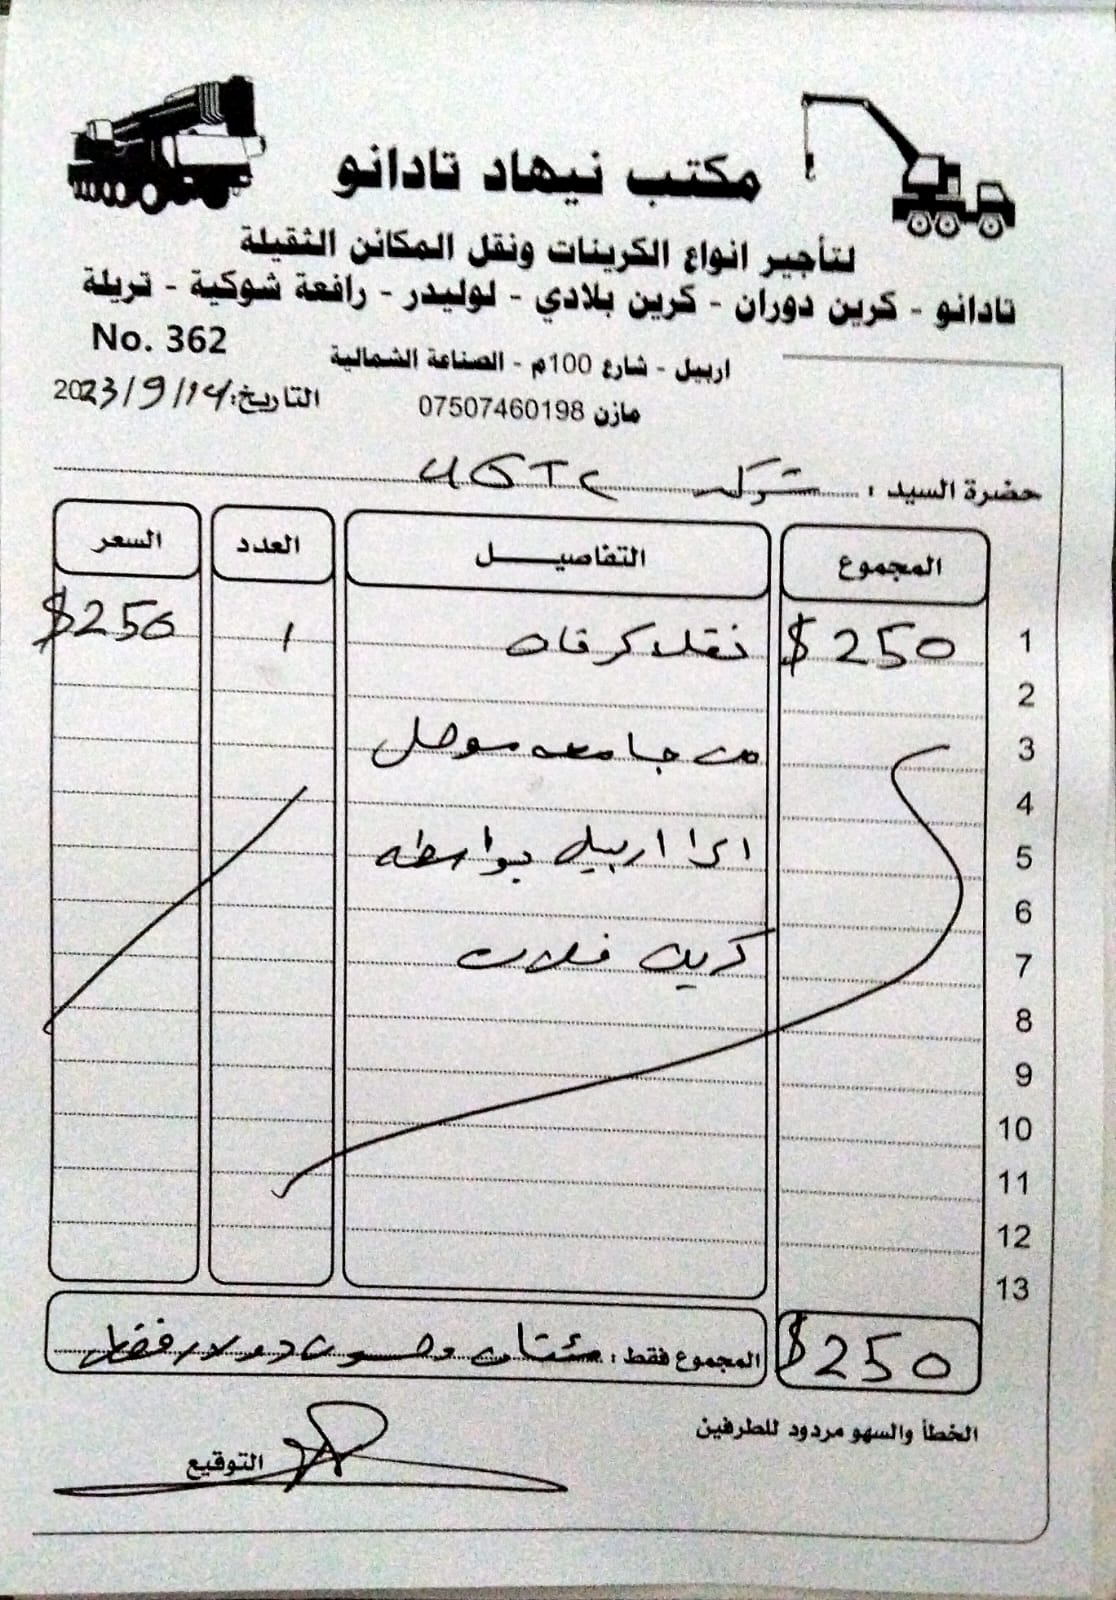 مكتب نيهاد تادانو
لتأجير انواع الكرينات ونقل المكائن الثقيلة
تادانو - كرين دوران - كرين بلادي - لوليدر - رافعة شوكية - تريلة
No. 362
اربيل - شارع 100م - الصناعة الشمالية
التاريخ: 2023/9/14
مازن 07507460198
حضرة السيد : شركة
المجموع التفاصيل العدد السعر
1 $250 نقل كرفان ١ $250
2
3 من جامعه موصل
4
5 الى اربيل بواسطه
6
7 كرين فلات
8
9
10
11
12
13
$250 المجموع فقط : مئتان وخمسون دولار فقط
الخطأ والسهو مردود للطرفين
التوقيع